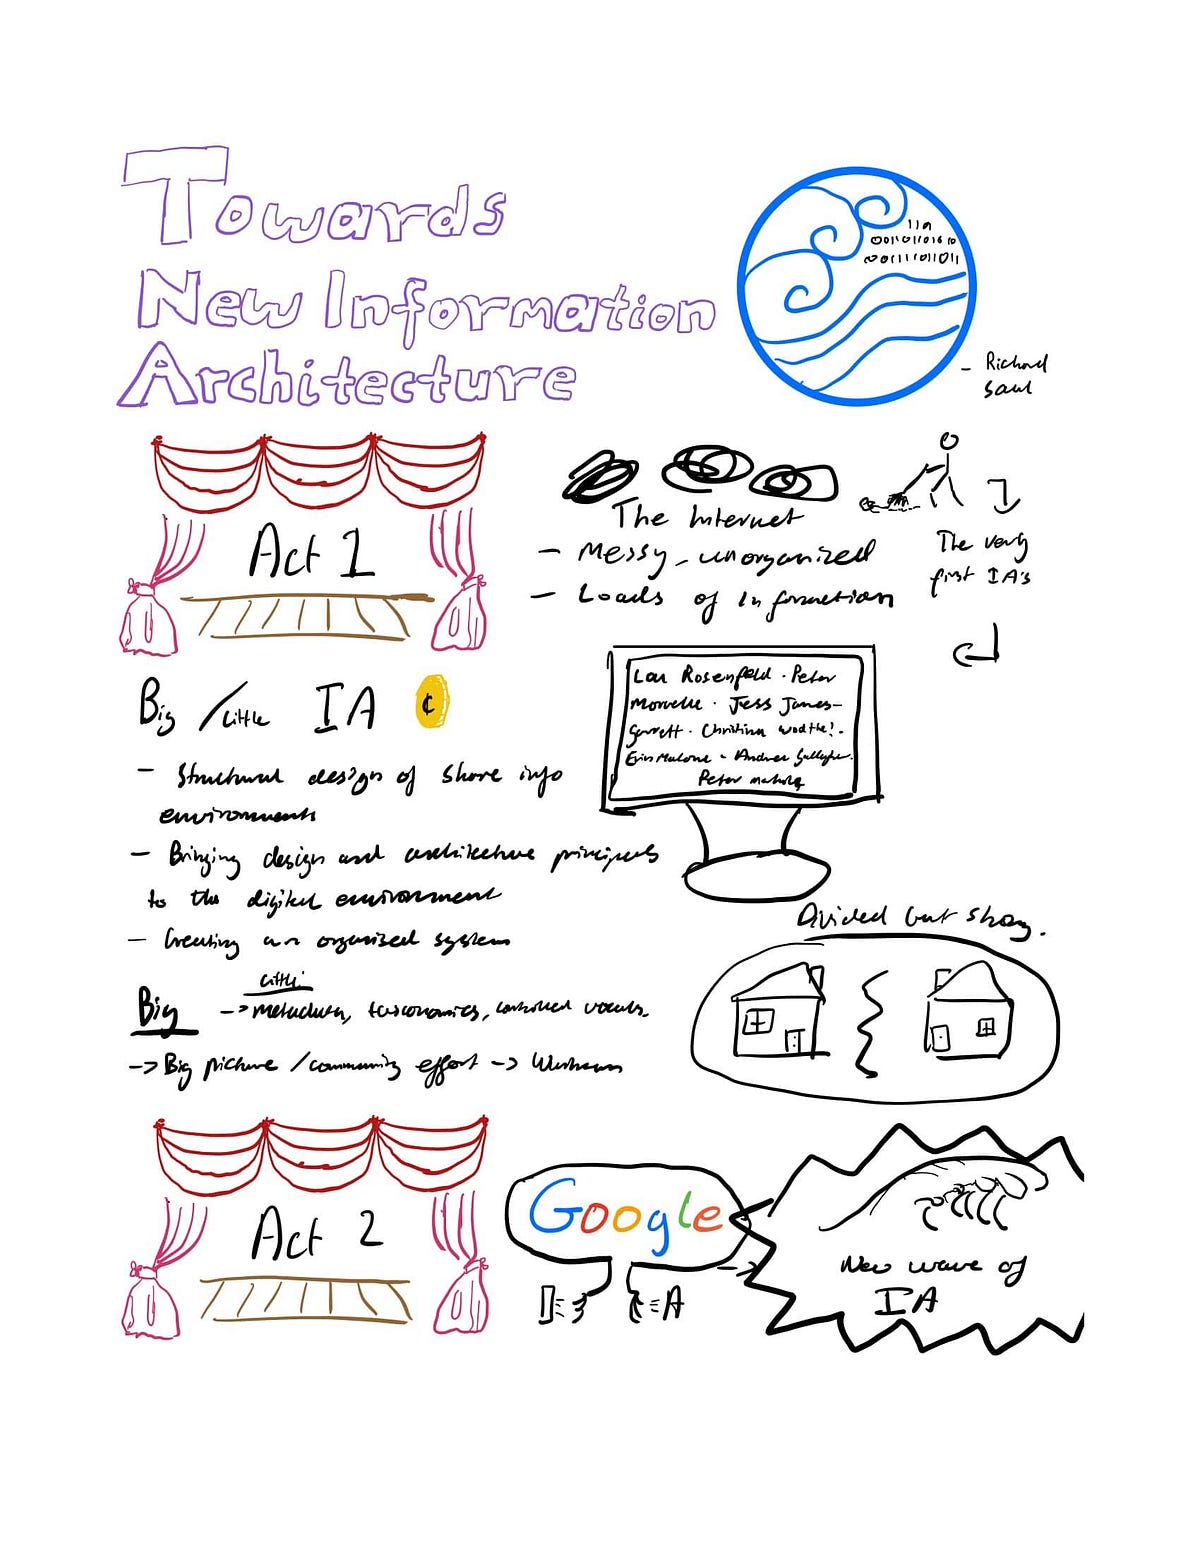 Towards
New Information
Architecture
110
00110110 10
00111101011
- Richard
Saul
Act 1
The Internet
- Messy, unorganized
- Loads of Information
The very
first IA's
Big / Little IA ¢
- Structural design of share info
environments
- Bringing design and architecture principals
to the digital environment
- Creating an organised system
Lou Rosenfeld · Peter
Morville · Jess James-
Garrett · Christina Wodtke! -
Erin Malone - Andrea Gallagher.
Peter
Divided but strong.
Little:
Big -> Metadata, taxonomies, controlled vocabs.
-> Big picture / community effort ->
Act 2
Google
I A
New wave of
IA